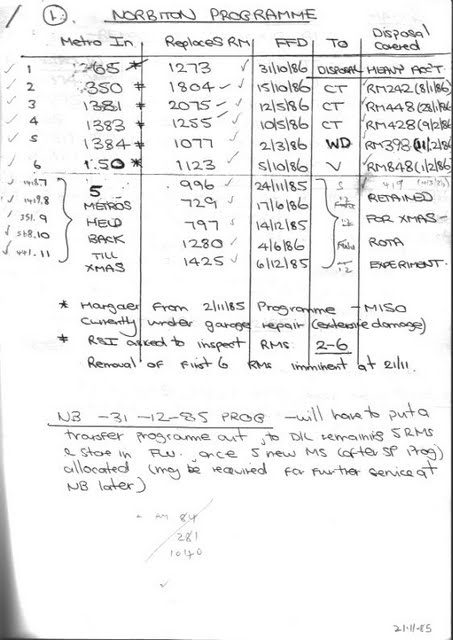 1. NORBITON PROGRAMME
Metro In Replaces RM FFD TO Disposal covered
1 1365 * 1273 31/10/86 DISPOSAL HEAVY ACC'T
2 350 * 1804 15/10/86 CT RM242 (8/1/86)
3 1381 2075 * 12/5/86 CT RM448
4 1383 * 1255 10/5/86 CT RM428 (9/2/86)
5 1384 * 1077 2/3/86 WD RM393
6 1.50 * 1123 5/10/86 V RM848 (1/2/86)
7 5 996 24/11/85 S 419
349.8 METROS 729 17/6/86 RETAINED
351.9 HELD 797 14/12/85 FOR XMAS
568.10 BACK 1280 4/6/86 ROTA
441.11 TILL 1425 6/12/85 12 EXPERIMENT.
XMAS
* Margaer From 2/11/85 Programme - M150
Currently under garage repair (extensive damage)
* RSI asked to inspect RMs 2-6
Removal of First 6 RMs imminent at 21/11.
NB -31-12-85 PROG - will have to put a
transfer programme out, to DIL remaining 5 RMs
& store in FW. once 5 new MS (after SP prog)
allocated (may be required for further service at
NB later)
RM 84
281
1010
21.11.85